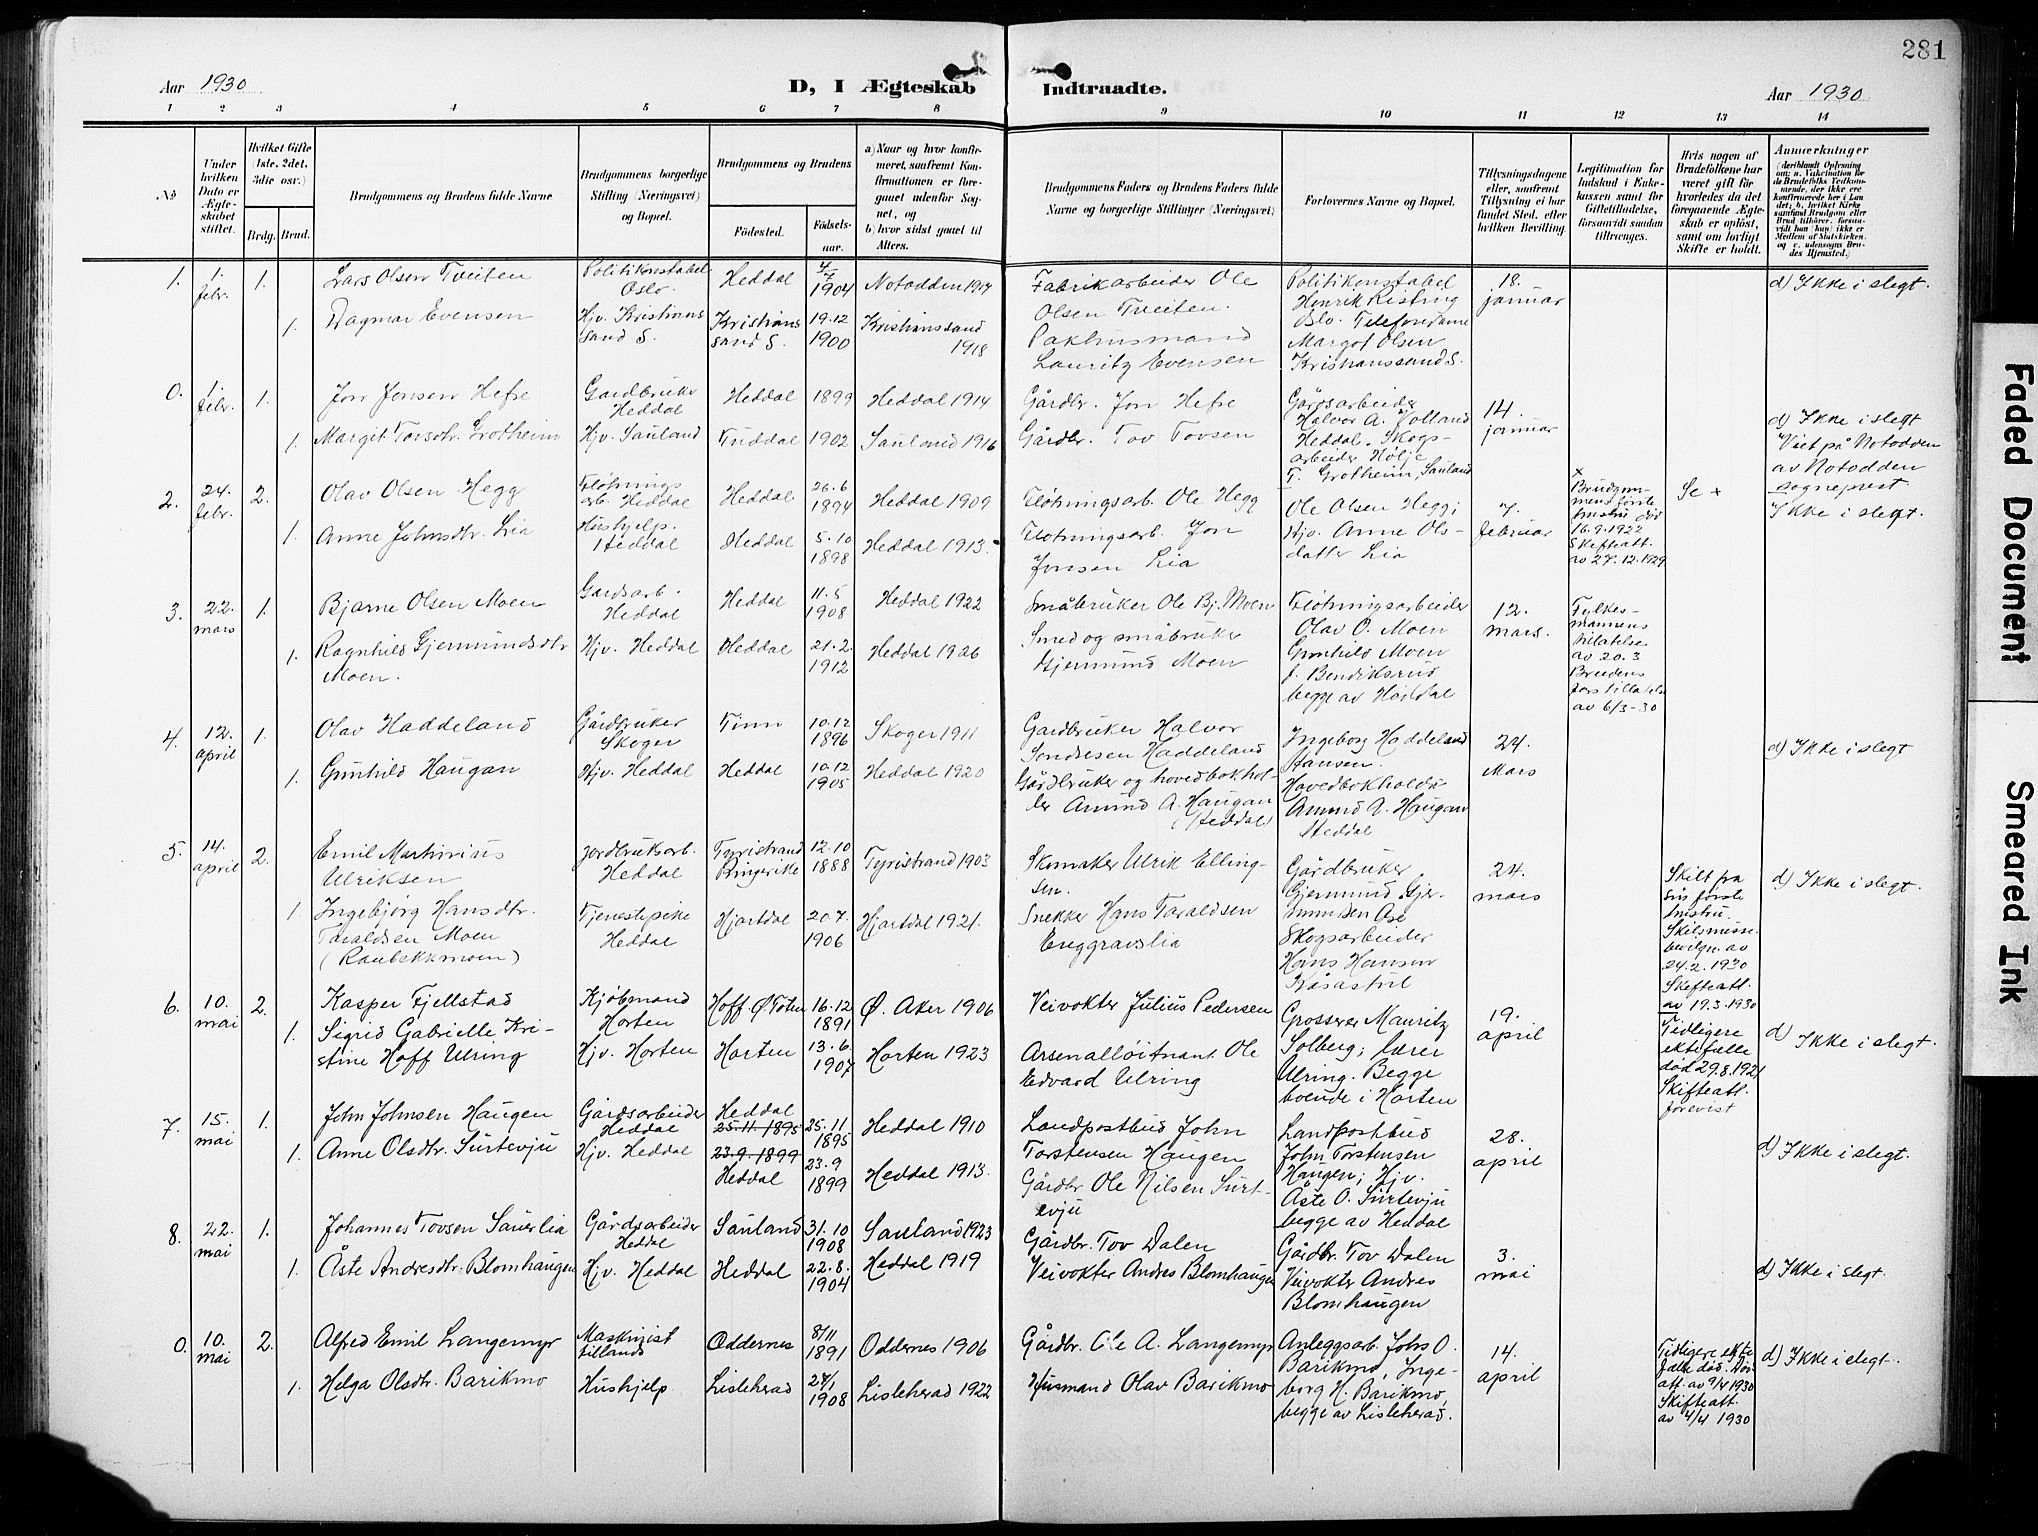 281
Aar 1930
D, I Ægteskab
Indtraadte.
Aar 1930
1 2 3 4 5 6 7 8 9 10 11 12 13 14
No
Under hvilken Dato er Ægteskabet stiftet.
Hvilket Gifte (1ste. 2det. 3die osv.)
Brdg. Brud.
Brudgommens og Brudens fulde Navne
Brudgommens borgerlige Stilling (Næringsvei) og Bopæl.
Brudgommens og Brudens
Fødested.
Fødselsaar.
a) Naar og hvor konfirmeret, saafremt Konfirmationen er foregaaet udenfor Sognet, og
b) hvor sidst gaaet til Alters.
Brudgommens Faders og Brudens Faders fulde Navne og borgerlige Stillinger (Næringsvei)
Forlovernes Navne og Bopæl.
Tillysningsdagene eller, saafremt Tillysning ei har fundet Sted, efter hvilken Bevilling.
Legitimation for Indskud i Enkekassen samt for Giftetilladelse, forsaavidt saadan tiltrænges.
Hvis nogen af Brudefolkene har været gift før hvorledes da det foregaaende Ægteskab er opløst, samt om lovligt Skifte er holdt.
Anmerkninger
(deriblandt Oplysning om: a. Vakcination for de Brudefolks Vedkommende, der ikke ere konfirmerede her i Landet; b. hvilket Kirkesamfund Brudgom eller Brud tilhører, forsaavidt han (hun) ikke er Medlem af Statskirken, og c. udensogns Brudes Hjemsted.)
1. 1. febr. 1. Lars Olsen Tveiten
Politikonstabel Oslo. Heddal 4/7 1904 Notodden 1919
Fabrikarbeider Ole Olsen Tveiten.
Politikonstabel Henrik Risting Oslo. Telefondame Margot Olsen Kristianssand S.
18. januar
d) Ikke i slegt.
1. Dagmar Evensen
Hjv. Kristianssand S. Kristianssand S. 19.12 1900 Kristianssand 1918
Pakhusmand Lauritz Evensen
0. 1. febr. 1. Jon Jonsen Hefre
Gardbruker Heddal Heddal 1899 Heddal 1914
Gårdbr. Jon Hefre
Gårdsarbeider Halvor A. Volland Heddal. Skogsarbeider Hølje T. Grotheim, Sauland
14. januar
d) Ikke i slegt
Viet på Notodden av Notodden sogneprest
1. Margit Tovsdtr. Grotheim Hjv. Sauland Tuddal 1902 Sauland 1916 Gårdbr. Tov Tovsen
2. 24. febr. 2. Olav Olsen Hegg
Fløtningsarb. Heddal Heddal 26.6 1894 Heddal 1909
Fløtningsarb. Ole Hegg
Ole Olsen Hegg; Hjv. Anne Olsdatter Lia
7. februar
x Brudgommens første hustru død 16.9.1922 Skifteatt. av 27.12.1929
Se x
Ikke i slegt.
1. Anne Johnsdtr. Lia
Hushjelp. Heddal Heddal 5.10 1898 Heddal 1913.
Fløtningsarb. Jon Jonsen Lia
3. 22. mars 1. Bjarne Olsen Moen
Gardsarb. Heddal Heddal 11.5 1908 Heddal 1922
Småbruker Ole Bj. Moen
Fløtningsarbeider Olav O. Moen Gunhild Moen f. Bendiksrud begge av Heddal
12. mars.
Fylkesmannens tillatelse av 20.3 Brudens fars tillatelse av 6/3-30
1. Ragnhild Gjermundsdtr Moen.
Hjv. Heddal Heddal 21.2. 1912 Heddal 1926
Smed og småbruker Gjermund Moen
4. 12. april 1. Olav Haddeland
Gårdbruker Skoger Tinn 10.12 1896 Skoger 1911
Gardbruker Halvor Sondresen Haddeland
Ingeborg Haddeland Hansen. Hovedbokholder Amund A. Haugan Heddal
24. Mars
d) Ikke i slegt
1. Gunhild Haugan
Hjv. Heddal Heddal 10.12 1905 Heddal 1920
Gårdbruker og hovedbokholder Amund A. Haugan (Heddal)
5. 14. april 2. Emil Martinius Ulriksen
Jordbruksarb. Heddal Tyristrand Ringerike 12.10 1888 Tyristrand 1903
Skomaker Ulrik Ellingsen.
Gårdbruker Gjermund Gjermundsen Ase Skogsarbeider Hans Hansen Kåsastul
24. mars
Skilt fra sin første hustru. Skilsmissebevilgn. av 24.2.1930 Skifteatt. av 19.3.1930
d) Ikke i slegt.
1. Ingebjørg Hansdtr. Taraldsen Moen (Raubekkmoen)
Tjenestepike Heddal Hjartdal 20.7. 1906 Hjartdal 1921.
Snekker Hans Taraldsen Enggravslia
6. 10. mai 2. Kasper Fjellstad
Kjøbmand Horten Hoff Ø. Toten 16.12 1891 Ø. Aker 1906
Veivokter Julius Pedersen
Grosserer Mauritz Solberg; lærer Ulring. Begge boende i Horten
19. april
Tidligere ektefælle død 29.8.1921 Skifteatt. forevist
d) Ikke i slegt.
1. Sigrid Gabrielle Kristine Hoff Ulring
Hjv. Horten Horten 13.6. 1907 Horten 1923
Arsenalløitnant Ole Edvard Ulring
7. 15. mai 1. John Johnsen Haugen
Gårdsarbeider Heddal Heddal 25.11 1895 25.11 1895 Heddal 1910
Landpostbud John Torstensen Haugen
Landpostbud John Torstensen Haugen; Hjv. Åste O. Surtevju begge av Heddal
28. april
d) Ikke i slegt.
1. Anne Olsdtr. Surtevju
Hjv. Heddal 23.9.1899 Heddal 23.9 1899 Heddal 1913.
Gårdbr Ole Nilsen Surtevju
8. 22. mai 1. Johannes Tovsen Sauerlia
Gårdsarbeider Heddal Sauland 31.10 1908 Sauland 1923
Gårdbr. Tov Dalen
Gårdbr. Tov Dalen Veivokter Andres Blomhaugen
3. mai
d) Ikke i slegt.
1. Åste Andresdtr. Blomhaugen
Hjv. Heddal Heddal 22.8. 1904 Heddal 1919
Veivokter Andres Blomhaugen
0. 10. mai 2. Alfred Emil Langemyr
Maskinist tillands Oddernes 8/11 1891 Oddernes 1906
Gårdbr. Ole A. Langemyr
Anleggsarb. Johs O. Barikmo, Ingeborg H. Barikmo, begge av Lisleherad.
14. april
Tidligere ektefælle død. Dødsatt. av 9/4 1930 Skifteatt. av 4/4 1930
d) Ikke i slegt.
1. Helga Olsdtr. Barikmo
Hushjelp Lisleherad 27/1 1908 Lisleherad 1922
Husmand Olav Barikmo
Faded Document
Smeared Ink